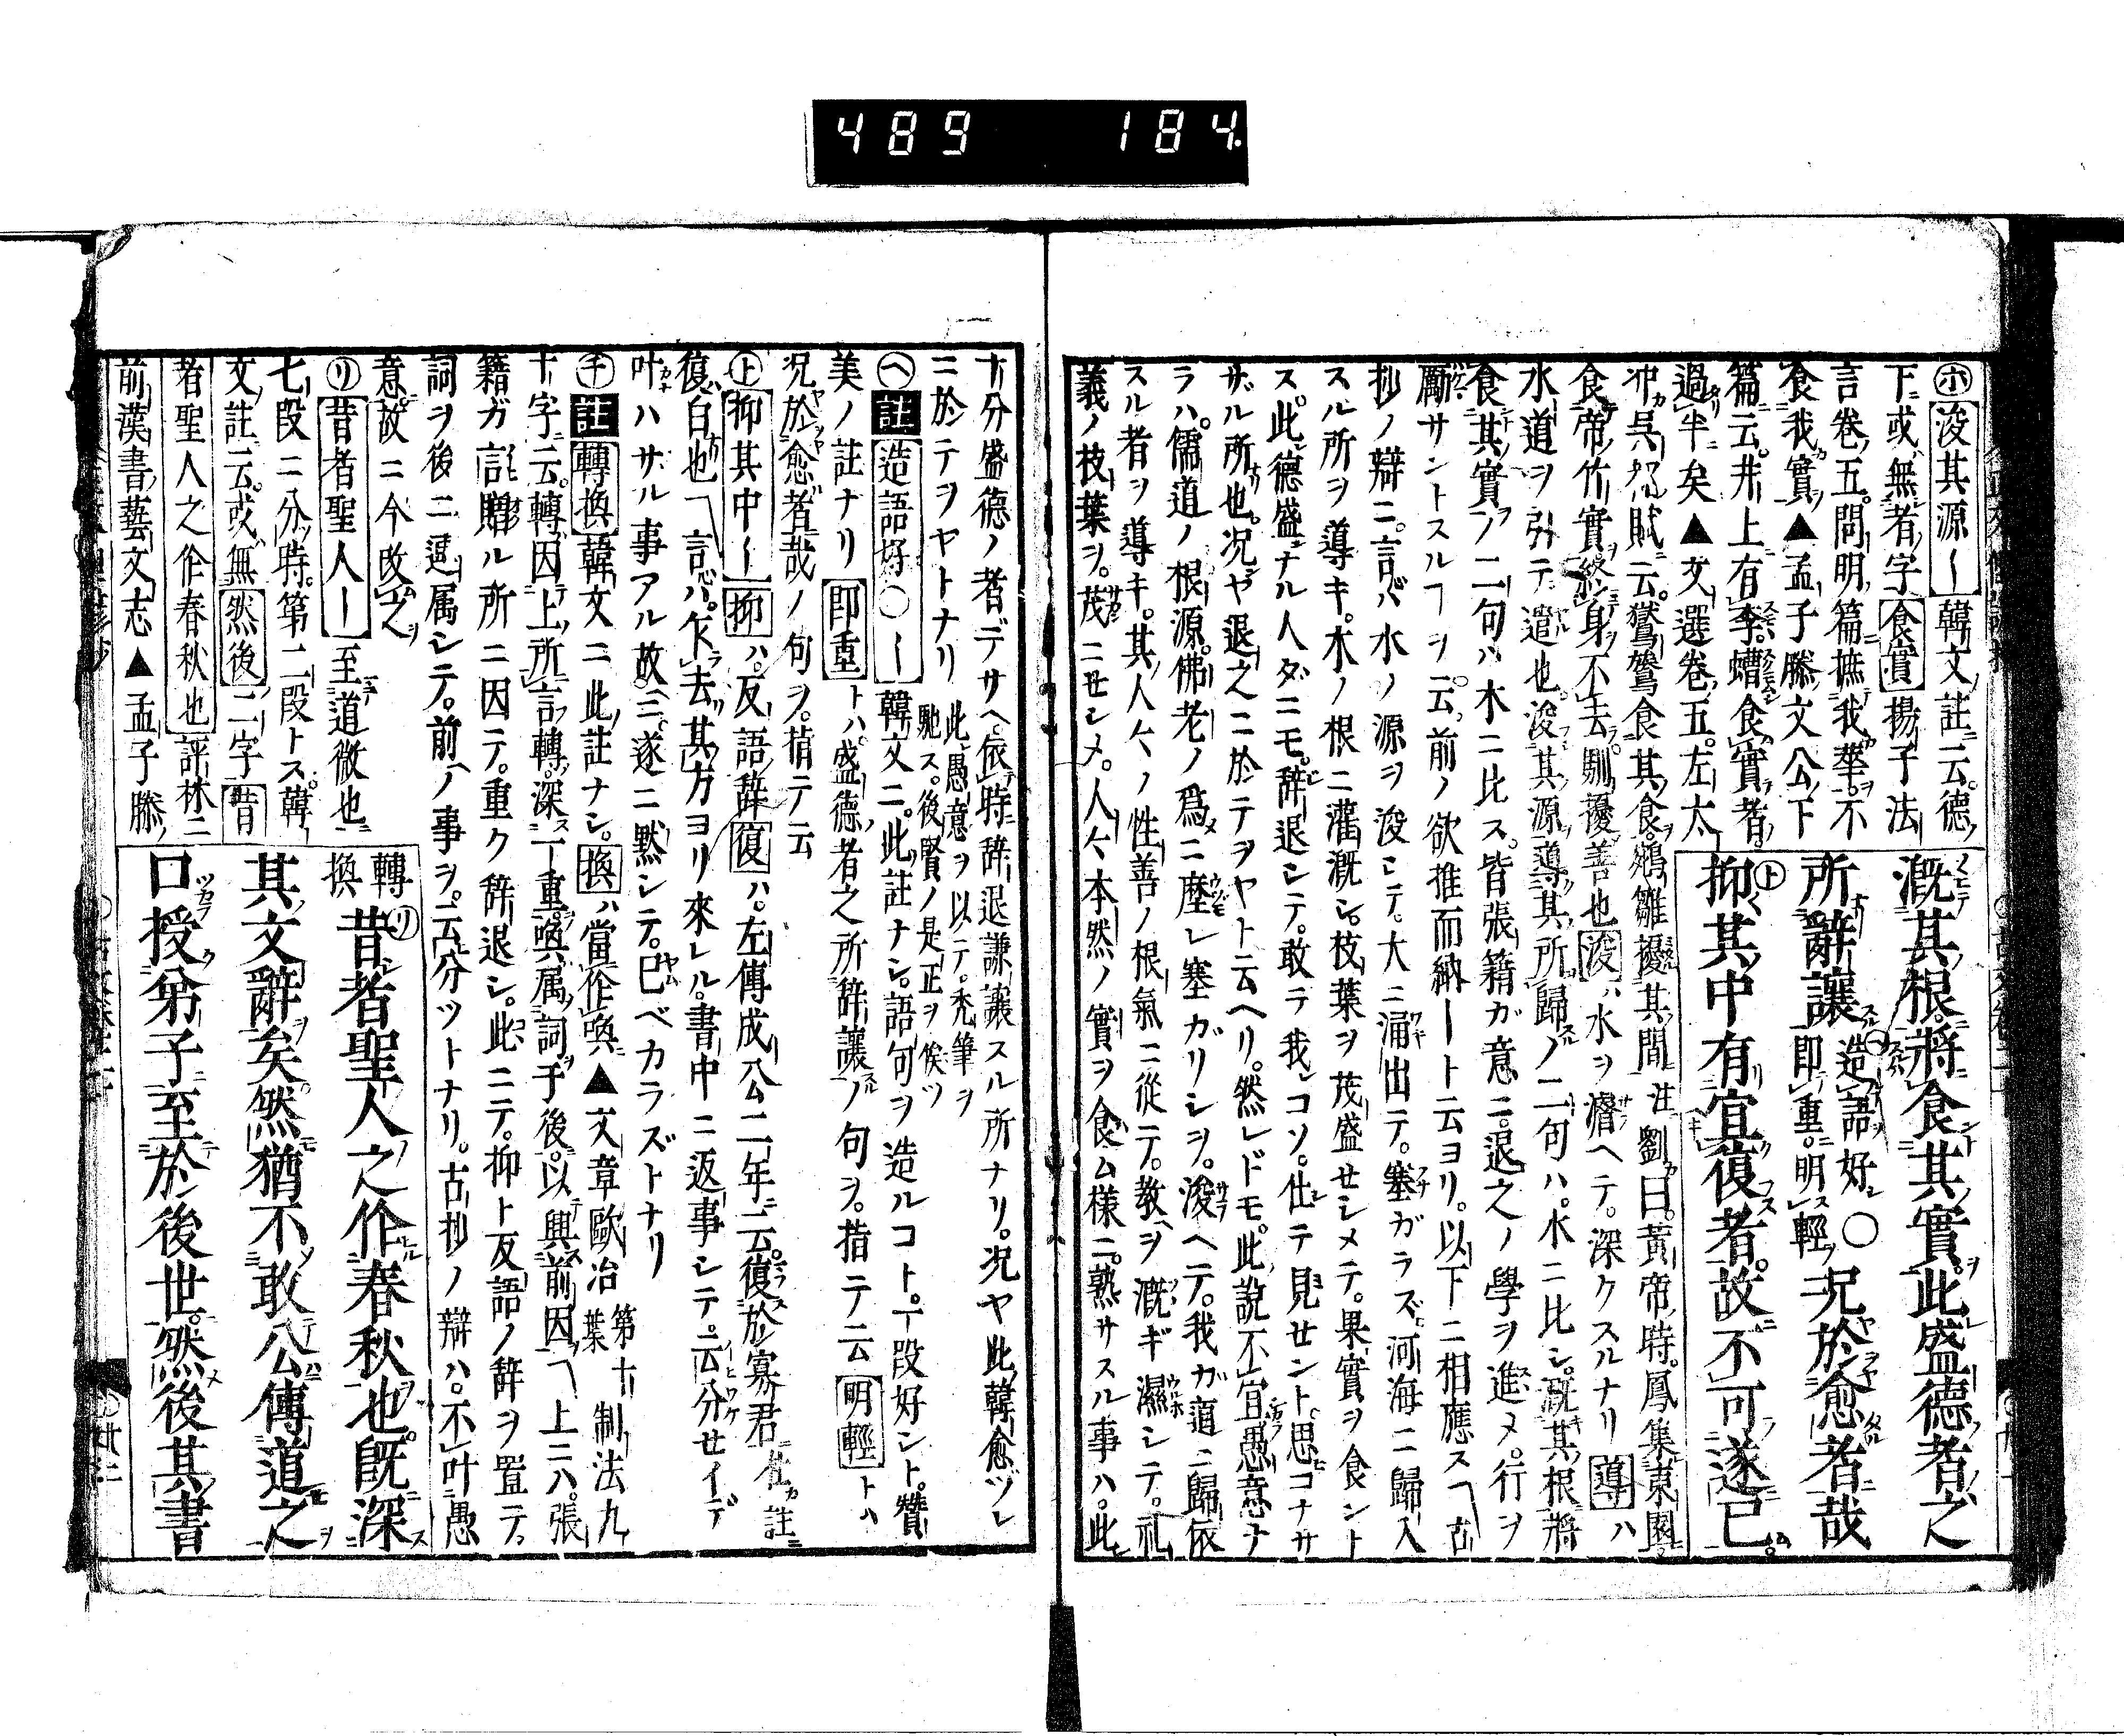 489 184
漑其根將食其實此盛德者之
所辭讓 造語好〇 即重明輕 况於愈者哉
㋣抑其中有宜復者故不可遂已
㋭浚其源〡韓文註云德
下或無者字 食實 揚子法
言卷五問明篇摭我華不
食我實▲孟子滕文公下
篇云井上有李螬食實者
過半矣▲文選卷五左太
冲吳都賦云鸑鷟食其實鵷雛擾其間 注劉曰黃帝時鳳集東園
食帝竹實終身不去馴擾善也 浚ハ水ヲ濬ヘテ深クスルナリ 導ハ
水道ヲ引テ遣也浚其源導其所歸ノ二句ハ水ニ比シ漑其根將
食其實ノ二句ハ木ニ比ス皆張籍ガ意ニ退之ノ學ヲ進メ行ヲ
勵サントスルヿヲ云前ノ欲推而納〡ト云ヨリ以下ニ相應スヿ古
抄ノ辯ニ言ハ水ノ源ヲ浚シテ大ニ涌出テ塞ガラズ河海ニ歸入
スル所ヲ導キ木ノ根ニ灌漑シ枝葉ヲ茂盛セシメテ果實ヲ食ント
ス此德盛ナル人ダニモ辞退シテ敢テ我コソ仕テ見セント思コナサ
ザル所也况ヤ退之ニ於テヲヤト云ヘリ然レドモ此說不宜愚意ナ
ラハ儒道ノ根源佛老ノ爲ニ塵レ塞ガリシヲ浚ヘテ我ガ道ニ歸依
スル者ヲ導キ其人々ノ性善ノ根氣ニ從テ教ヲ漑ギ濕シテ礼
義ノ枝葉ヲ茂ニセシメ人々本然ノ實ヲ食ム樣ニ熟サスル事ハ此
十分盛德ノ者デサヘ依時辞退謙讓スル所ナリ况ヤ此韓愈ヅレ
ニ於テヲヤトナリ 此愚意ヲ以テ禿筆ヲ
馳ス後賢ノ是正ヲ俟ツ
㋬註 造語好〇〡 韓文ニ此註ナシ語句ヲ造ルコト一段好シト贊
美ノ註ナリ 即重 トハ盛德者之所辞讓ノ句ヲ指テ云 明輕 トハ
况於愈者哉ノ句ヲ指テ云
㋣抑其中〡 抑ハ反語辞 復ハ左傳成公二年云復於寡君 杜註
復白也ヿ言ハ乍去其方ヨリ來レル書中ニ返事シテ云分セイデ
叶ハサル事アル故ニ遂ニ默シテ已ベカラズトナリ
㋠註 轉換 韓文ニ此註ナシ 換ハ當作喚▲文章歐冶 第十葉 制法九
十字云轉因上所言轉深一重喚属詞于後以興前因ヿ上ニハ張
籍ガ言贈ル所ニ因テ重ク辞退シ此ニテ抑ト反語ノ辞ヲ置テ
詞ヲ後ニ連属シテ前ノ事ヲ云分ツトナリ古抄ノ辯ハ不叶愚
意故ニ今改之
㋷昔者聖人〡 至道微也
七段ニ分時第二段トス韓
文註云或無 然後 二字 昔
者聖人之作春秋也 評林ニ
前漢書藝文志▲孟子滕
轉換 ㋷昔者聖人之作春秋也旣深
其文辭矣然猶不敢公傳道之
口授弟子至於後世然後其書